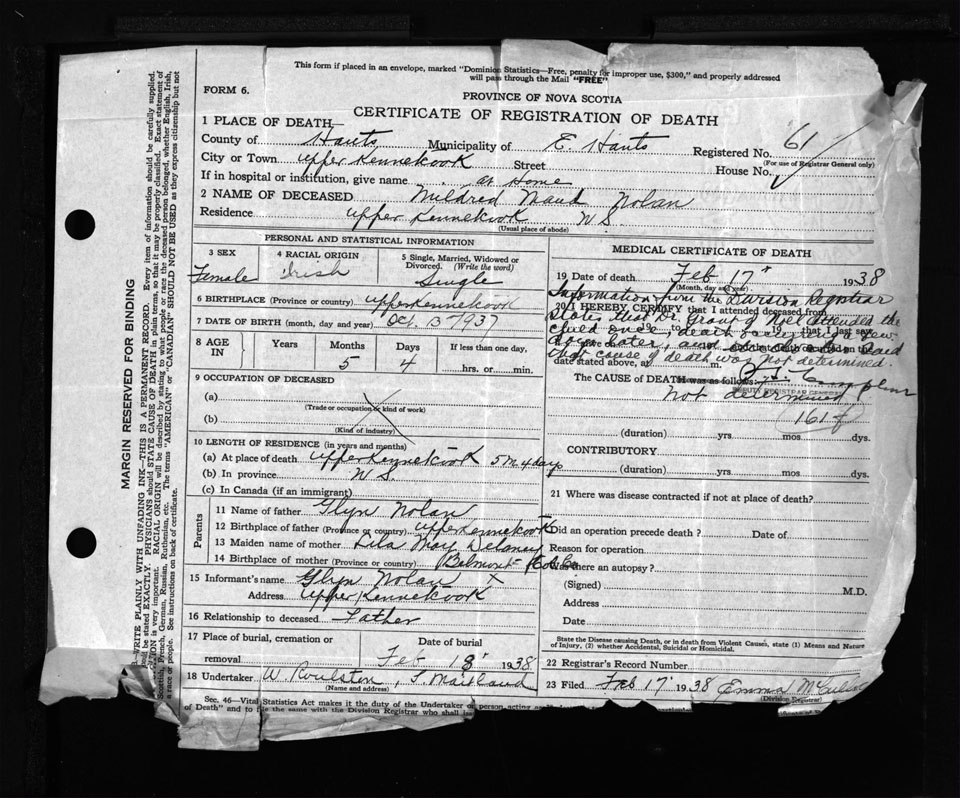 This form if placed in an envelope, marked "Dominion Statistics—Free, penalty for improper use, $300," and properly addressed
will pass through the Mail "FREE"
FORM 6.
PROVINCE OF NOVA SCOTIA
CERTIFICATE OF REGISTRATION OF DEATH
1 PLACE OF DEATH—
County of Hants Municipality of E. Hants Registered No. 61
(For use of Registrar General only)
City or Town Upper Kennekook Street House No.
If in hospital or institution, give name at Home
2 NAME OF DECEASED Mildred Maud Nolan
Residence Upper Kennekook N.S.
(Usual place of abode)
PERSONAL AND STATISTICAL INFORMATION
3 SEX
Female
4 RACIAL ORIGIN
Irish
5 Single, Married, Widowed or
Divorced. (Write the word)
Single
6 BIRTHPLACE (Province or country) Upper Kennekook
7 DATE OF BIRTH (month, day and year) Oct. 13 1937
8 AGE IN Years Months Days If less than one day,
5 4 hrs. or min.
9 OCCUPATION OF DECEASED
(a)
(Trade or occupation or kind of work)
(b)
(Kind of industry)
10 LENGTH OF RESIDENCE (in years and months)
(a) At place of death Upper Kennekook 5 m 4 days
(b) In province N.S.
(c) In Canada (if an immigrant)
Parents
11 Name of father Glyn Nolan
12 Birthplace of father (Province or country) Upper Kennekook
13 Maiden name of mother Lila May Delaney
14 Birthplace of mother (Province or country) Belmont Col. Co
15 Informant's name Glyn Nolan X
Address Upper Kennekook
16 Relationship to deceased Father
17 Place of burial, cremation or
removal
Date of burial
Feb 18 1938
18 Undertaker W. Roulston, S. Maitland
(Name and address)
Sec. 46—Vital Statistics Act makes it the duty of the Undertaker or person acting as
of Death" and to file the same with the Division Registrar who shall
MEDICAL CERTIFICATE OF DEATH
19 Date of death Feb 17" 1938
(Month, day and year)
Information from the Division Registrar
20 I HEREBY CERTIFY that I attended deceased from
States that Dr. Grant of Noel attended the
child once, death occurred a few
19 that I last saw
days later, and
death occurred on the
that cause of death was not determined.
date stated above, at m.
The CAUSE OF DEATH was as follows:
Not determined
161 f
(duration) yrs mos dys.
CONTRIBUTORY
(duration) yrs. mos. dys.
21 Where was disease contracted if not at place of death?
Did an operation precede death ? Date of
Reason for operation
Was there an autopsy?
(Signed) M.D.
Address
Date
State the Disease causing Death, or in death from Violent Causes, state (1) Means and Nature
of Injury, (2) whether Accidental, Suicidal or Homicidal.
22 Registrar's Record Number
23 Filed Feb 17" 1938 Emma
(Division Registrar)
MARGIN RESERVED FOR BINDING
WRITE PLAINLY WITH UNFADING INK—THIS IS A PERMANENT RECORD. Every item of information should be carefully supplied.
be stated EXACTLY. PHYSICIANS should STATE CAUSE OF DEATH in plain terms, so that it may be properly classified. Exact statement of
is very important. RACIAL ORIGIN will be described by stating to what people or race the deceased person belonged, whether English, Irish,
Scottish, French, German, Russian, Ruthenian, etc. The terms "AMERICAN" or "CANADIAN" SHOULD NOT BE USED as they express citizenship but not
a race or people. See instructions on back of certificate.